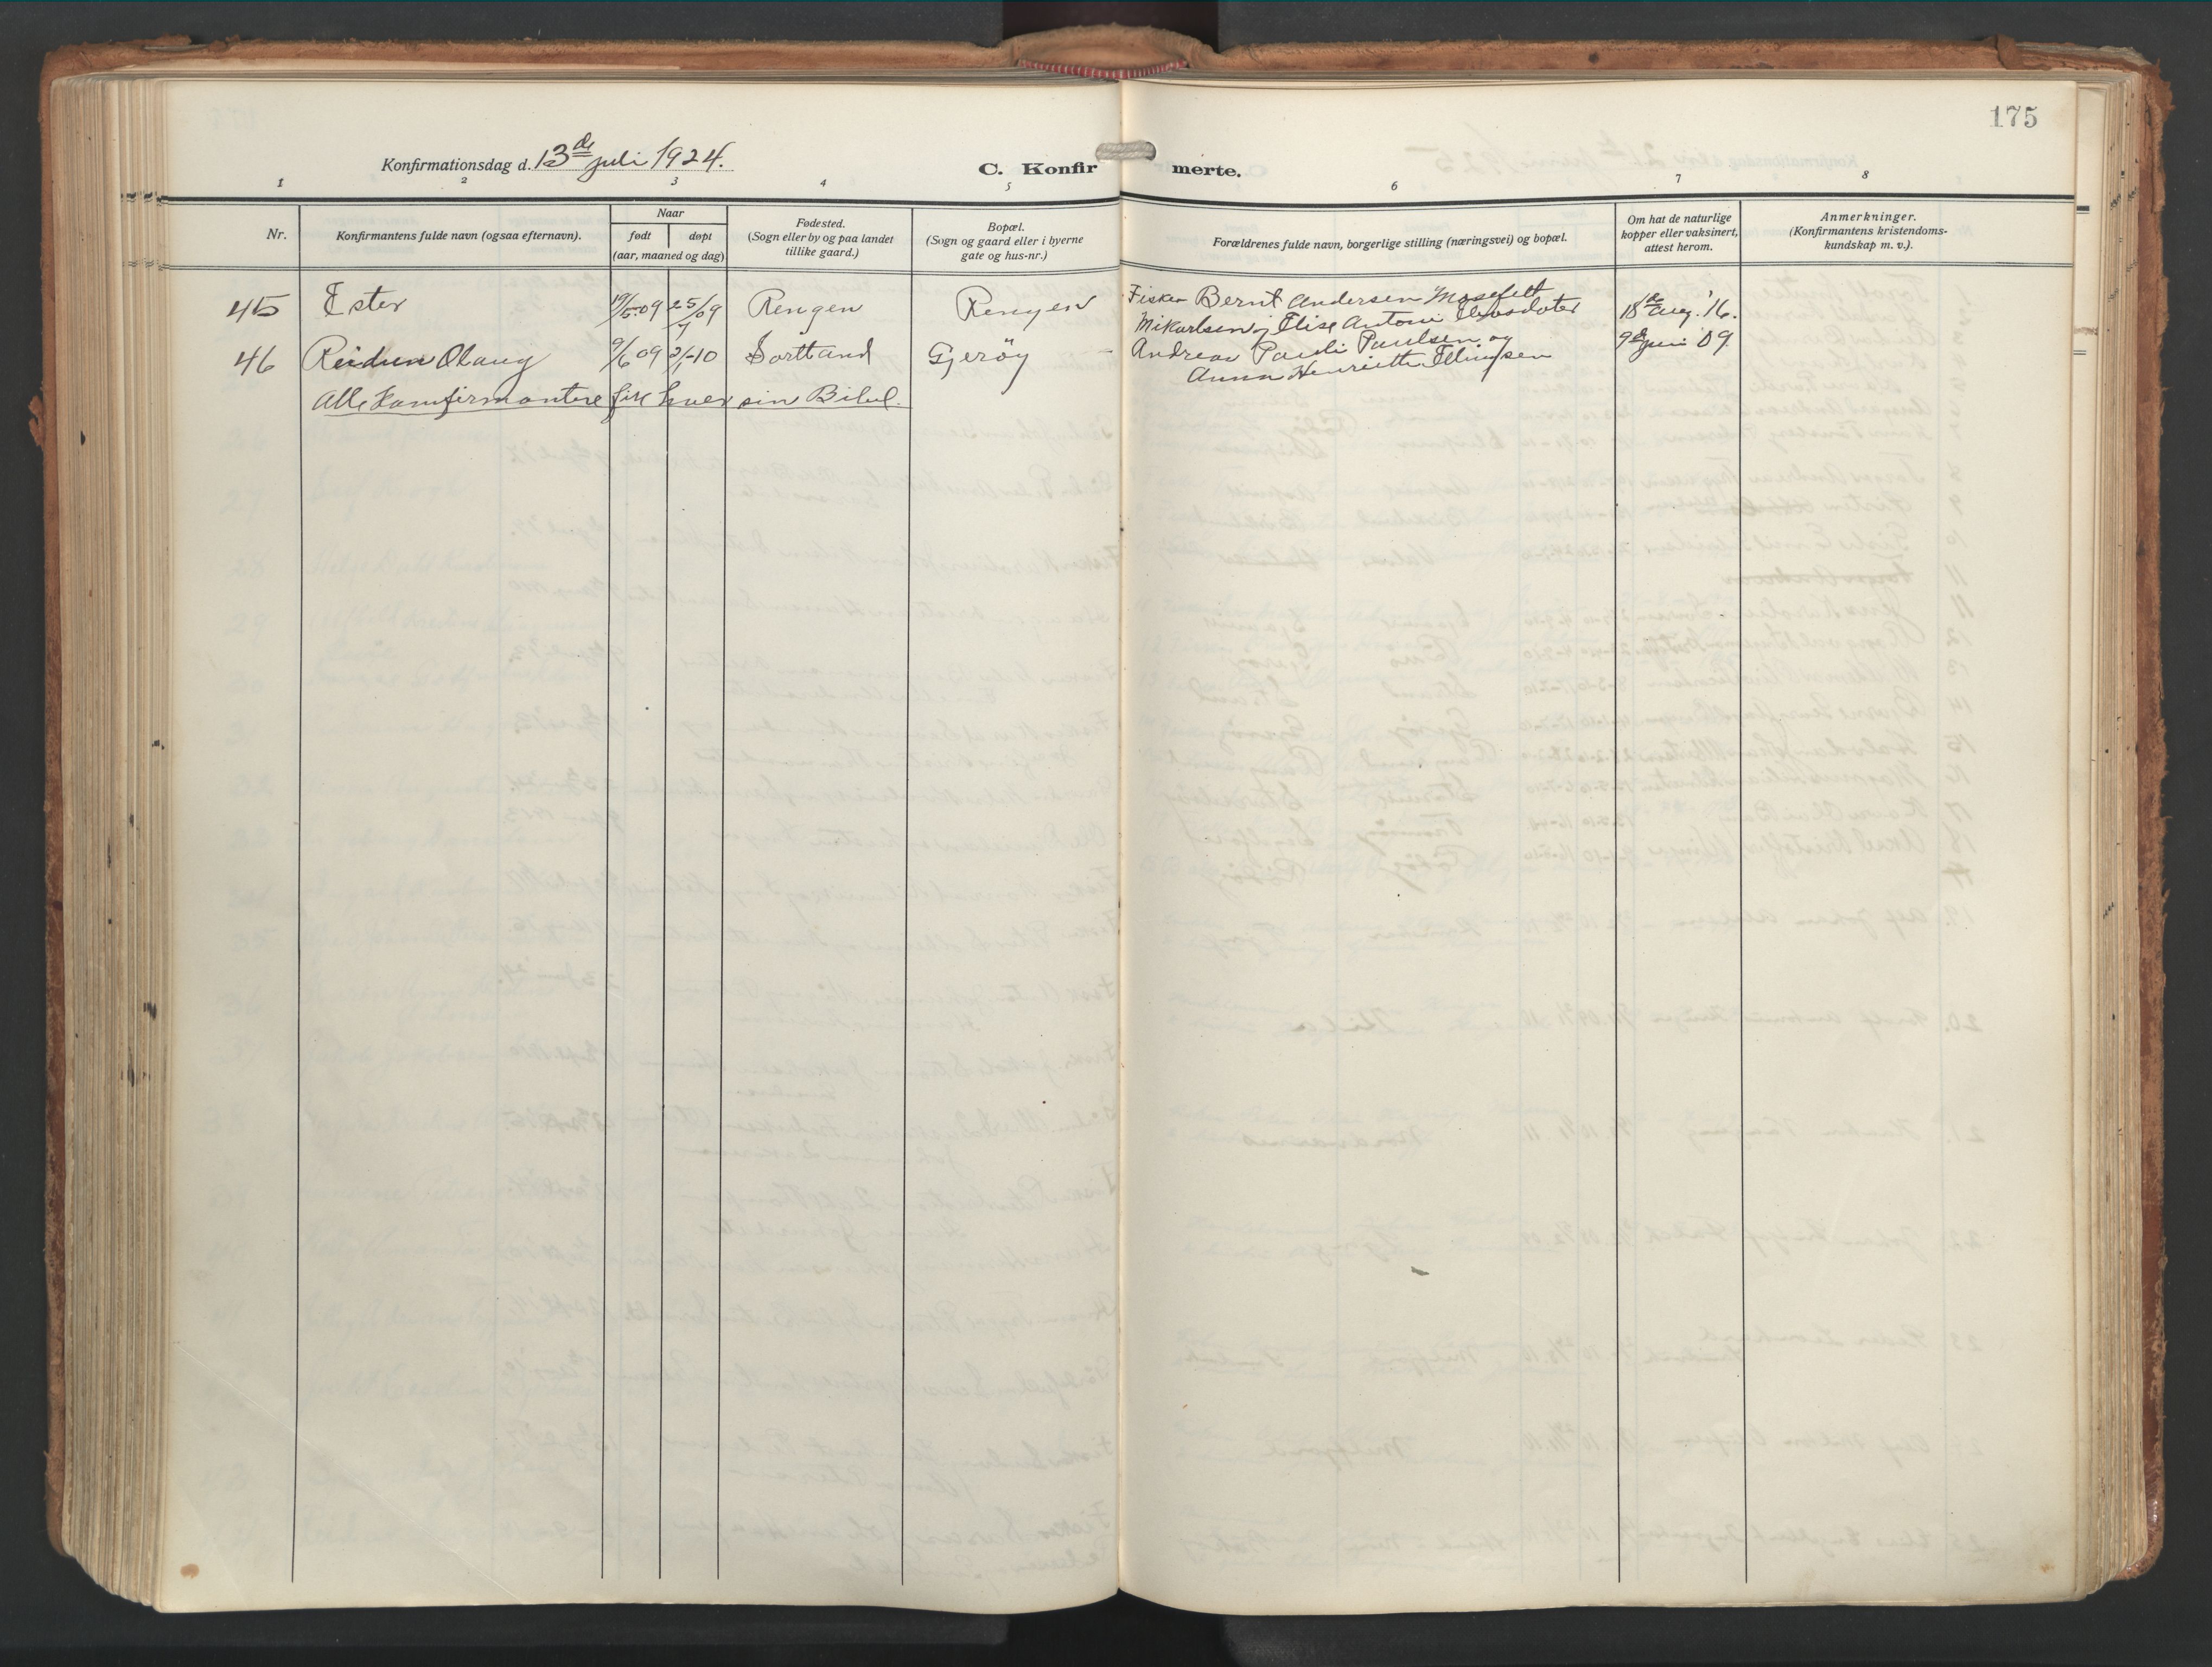 175
Konfirmationsdag d. 13de juli 1924.
C. Konfirmerte.
1 2 3 4 5 6 7 8
Nr.
Konfirmantens fulde navn (ogsaa efternavn).
Naar
født døpt
(aar, maaned og dag)
Fødested.
(Sogn eller by og paa landet
tillike gaard.)
Bopæl.
(Sogn og gaard eller i byerne
gate og hus-nr.)
Forældrenes fulde navn, borgerlige stilling (næringsvei) og bopæl.
Om hat de naturlige
kopper eller vaksinert,
attest herom.
Anmerkninger.
(Konfirmantens kristendoms-
kundskap m. v.).
45 Ester 19/5 09 25/7 09 Rengen Rengen Fisker Bernt Andersen
Mikarlsen, Elise Antoni 18de aug. '16.
46 Reidun Olaug 9/6 09 2/1-10 Sortland Gjerøy Andreas Pauli Paulsen og 9de juni 09
Anna Henriette Ellingsen
Alle konfirmantene fik hver sin Bibel.